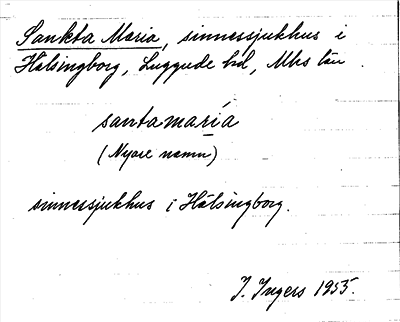 Sankta Maria, sinnessjukhus i
Hälsingborg, Luggude hd, Mhs län
santamaría
(Nyare namn)
sinnessjukhus i Hälsingborg.
I. Ingers 1955.